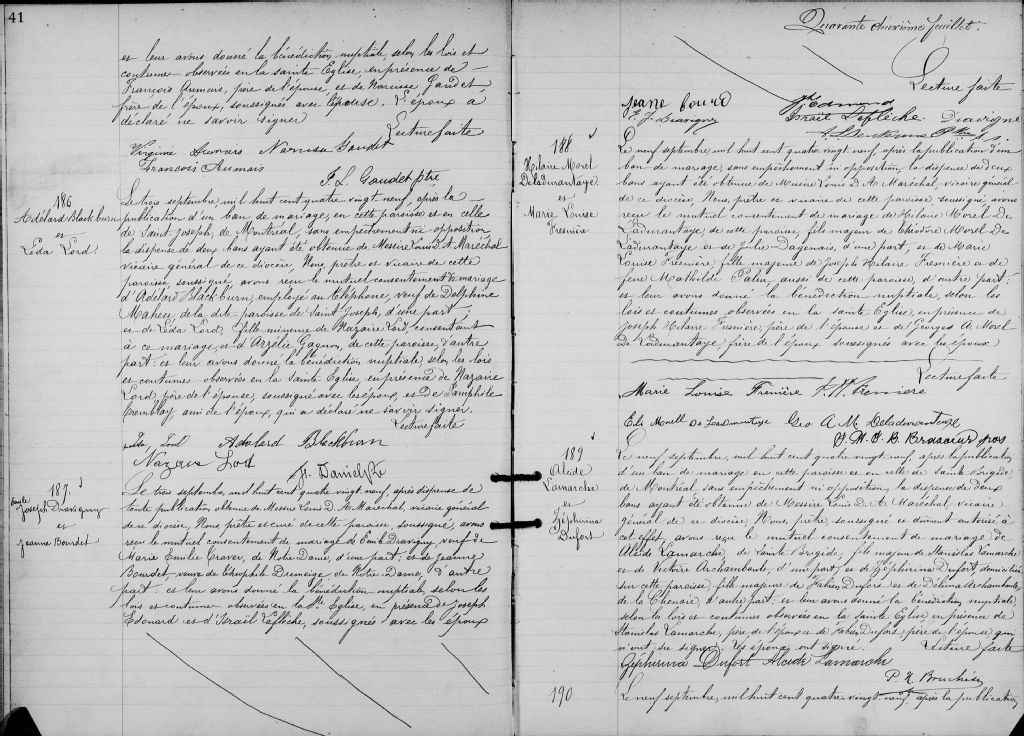 41
et leur avons donné la bénédiction nuptiale, selon les lois et
coutumes observées en la sainte Eglise, en présence de
François Aumais, père de l'épouse, et de Narcisse Gaudet,
frère de l'époux, soussignés avec l'épouse. L'époux a
déclaré ne savoir signer
Lecture faite
Virginie Aumais Narcisse Gaudet
François Aumais
P. L. Gaudet ptre
186
Adélard Blackburn
et
Léda Lord
Le trois septembre, mil huit cent quatre vingt neuf, après la
publication d'un ban de mariage, en cette paroisse et en celle
de Saint Joseph, de Montréal, sans empêchement ni opposition
la dispense de deux bans ayant été obtenue de Messire Louis D. A. Maréchal
vicaire général de ce diocèse, Nous, prêtre et vicaire de cette
paroisse soussigné, avons reçu le mutuel consentement de mariage
d'Adélard Blackburn, employé au téléphone, veuf de Delphine
Maheu, de la dite paroisse de Saint Joseph, d'une part;
et de Léda Lord, fille mineure de Nazaire Lord, consentant
à ce mariage et d'Arzélie Gagnon, de cette paroisse, d'autre
part: et leur avons donné la bénédiction nuptiale, selon les lois
et coutumes observées en la Sainte Eglise, en présence de Nazaire
Lord, père de l'épouse, soussigné avec les époux, et de Pamphile
Tremblay ami de l'époux, qui a déclaré ne savoir signer.
Lecture faite
Adélard Blackburn
Nazaire Lord
H. Daniel ptre
187
Emile
Joseph Duavigny
et
Jeanne Bourdet
Le trois septembre, mil huit cent quatre vingt neuf, après dispense de
toute publication obtenue de Messire Louis D. A. Maréchal, vicaire général
de ce diocèse, Nous prêtre et curé de cette paroisse, soussigné, avons
reçu le mutuel consentement de mariage de Emile Duavigny, veuf de
Marie Emilie Craver, de Notre Dame, d'une part, et de Jeanne
Bourdet, veuve de Théophile Dumeige de Notre Dame, d'autre
part: et leur avons donné la bénédiction nuptiale, selon les
lois et coutumes observées en la Ste Eglise, en présence de Joseph
Edouard et d'Israël Laflèche, soussignés avec les époux
Quarante deuxième feuillet.
Lecture faite
Jeane Bourd
E. J. Duavigny
J Edmond
Israël Laflèche Duavigne
188
Hilaire Morel
Deladurantaye
et
Marie Louise
Fresnière
Le neuf septembre, mil huit cent quatre vingt neuf, après la publication d'un
ban de mariage, sans empêchement ni opposition, la dispense de deux
bans ayant été obtenue de Messire Louis D. A. Maréchal, vicaire général
de ce diocèse, Nous, prêtre et vicaire de cette paroisse, soussigné, avons
reçu le mutuel consentement de mariage de Hilaire Morel De
Ladurantaye de cette paroisse, fils majeur de Théodore Morel De
Ladurantaye et de Julie Dagenais, d'une part, et de Marie
Louise Fresnière, fille majeure de Joseph Hilaire Fresnière et de
feue Mathilde Patin, aussi de cette paroisse, d'autre part:
et leur avons donné la bénédiction nuptiale, selon les
lois et coutumes observées en la sainte Eglise, en présence de
Joseph Hilaire Fresnière, père de l'épouse et de Georges A. Morel
De Ladurantaye, frère de l'époux soussignés avec les époux
Lecture faite
Marie Louise Frenière J. H. Frenière
Eli Morell De Ladurantaye Geo A. M. Deladurantaye
189
Alcide
Lamarche
et
Zéphirina
Dufort
Le neuf septembre, mil huit cent quatre vingt neuf, après la publication
d'un ban de mariage en cette paroisse et en celle de Sainte Brigide
de Montréal, sans empêchement ni opposition, la dispense de deux
bans ayant été obtenue de Messire Louis D. A. Maréchal, vicaire
général de ce diocèse, Nous, prêtre soussigné et dûment autorisé à
cet effet avons reçu le mutuel consentement de mariage de
Alcide Lamarche, de Sainte Brigide, fils majeur de Stanislas Lamarche
et de Victoire Archambault, d'une part, et de Zéphirina Dufort, domiciliée
sur cette paroisse, fille majeure de Fabien Dufort et de Délima Archambault,
de Lachenaie d'autre part: et leur avons donné la bénédiction nuptiale,
selon les lois et coutumes observées en la sainte Eglise en présence de
Stanislas Lamarche, père de l'époux et de Fabien Dufort, père de l'épouse qui
n'ont su signer. Les époux ont signé. Lecture faite
Zéphirina Dufort Alcide Lamarche
190
Le neuf septembre, mil huit cent quatre vingt neuf, après la publication